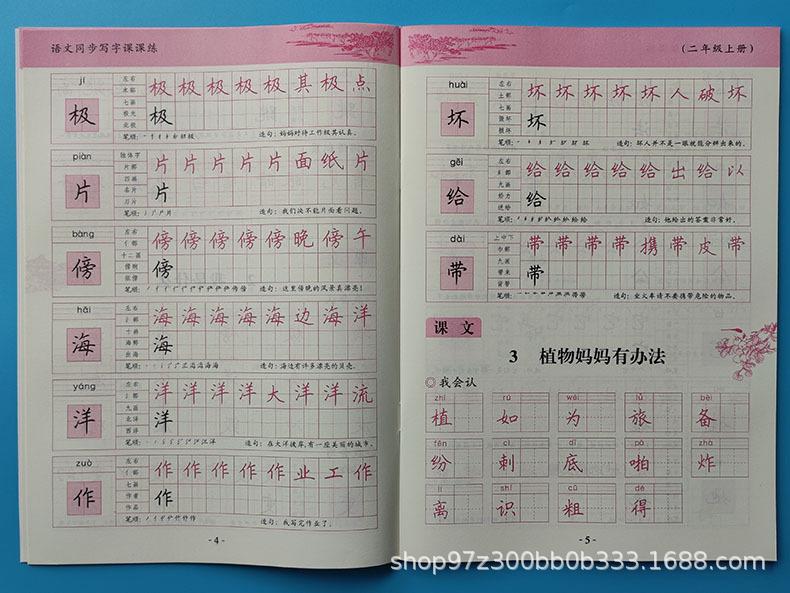 语文同步写字课课练
jí
左右
木部
七画
极光
北极
极
极 极 极 极 极 其 极 点
极
笔顺：
造句：妈妈对待工作极其认真。
piàn
独体字
片部
四画
名片
刀片
片
片 片 片 片 片 面 纸 片
片
笔顺：
造句：我们决不能片面看问题。
bàng
左右
亻部
十二画
傍
傍 傍 傍 傍 傍 晚 傍 午
傍
笔顺：
造句：这里傍晚的风景真漂亮！
hǎi
左右
氵部
十画
海鲜
出海
海
海 海 海 海 海 边 海 洋
海
笔顺：
造句：海边有许多漂亮的贝壳。
yáng
左右
氵部
九画
北洋
西洋
洋
洋 洋 洋 洋 大 洋 洋 流
洋
笔顺：
造句：在大洋彼岸，有一座美丽的城市。
zuò
左右
亻部
七画
作者
作品
作
作 作 作 作 作 业 工 作
作
笔顺：
造句：我写完作业了。
- 4 -
（二年级上册）
huài
左右
土部
七画
损坏
坏
坏 坏 坏 坏 坏 人 破 坏
坏
笔顺：
造句：坏人并不是一眼就能分辨出来的。
gěi
左右
纟部
九画
给力
送给
给
给 给 给 给 给 出 给 以
给
笔顺：
造句：他给出的答案非常好。
dài
上中下
巾部
九画
带来
背带
带
带 带 带 带 携 带 皮 带
带
笔顺：
造句：坐火车请不要携带危险的物品。
课 文
3 植物妈妈有办法
◎我会认
zhí rú wéi lǚ bèi
植 如 为 旅 备
fēn cì dǐ pā zhà
纷 刺 底 啪 炸
lí shí cū dé
离 识 粗 得
- 5 -
shop97z300bb0b333.1688.com